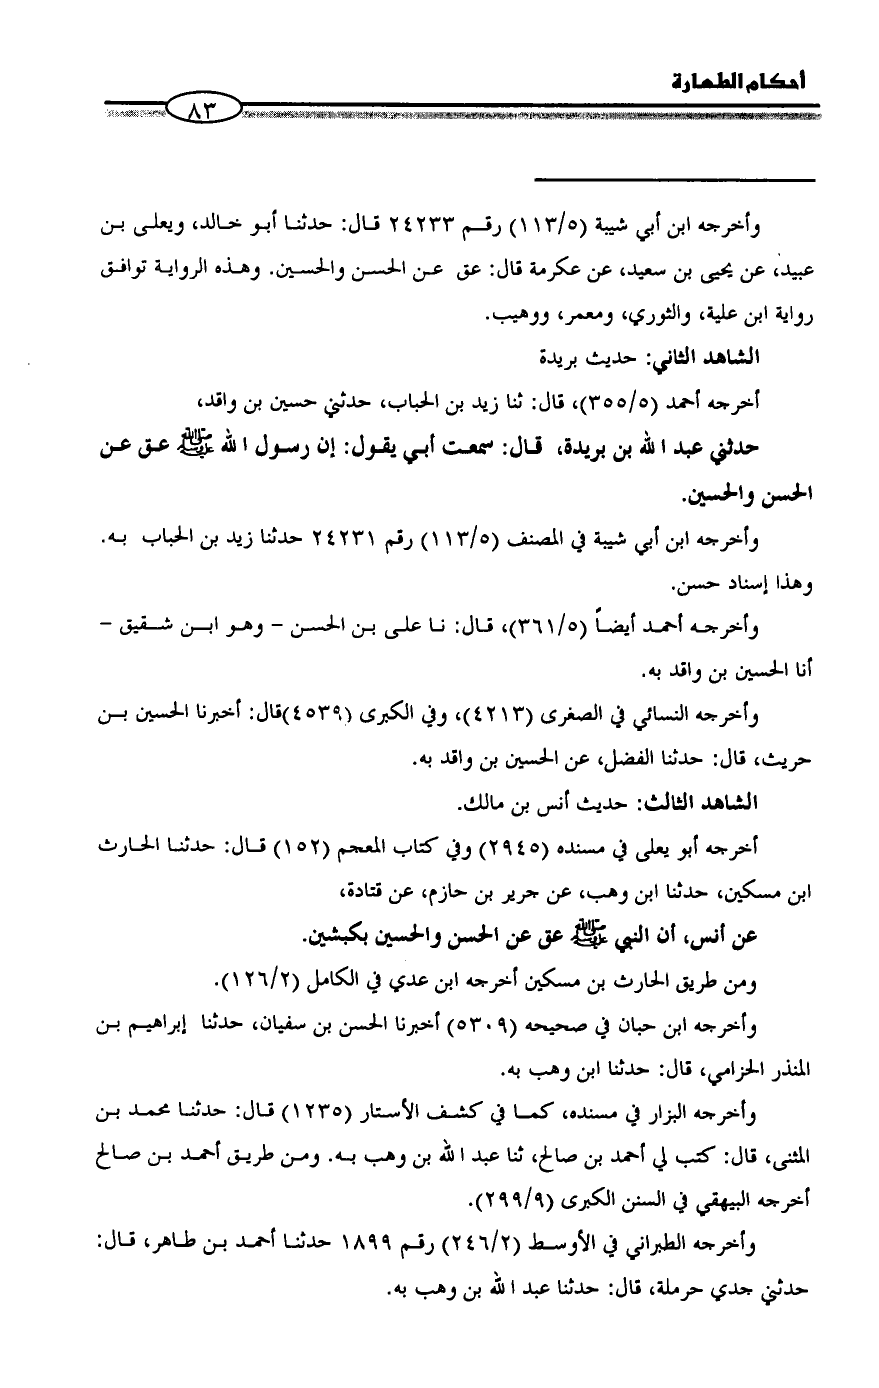 أحكام الطهارة
٨٣
وأخرجه ابن أبي شيبة (١١٣/٥) رقم ٢٤٢٣٣ قال: حدثنا أبو خالد، ويعلى بن
عبيد، عن يحيى بن سعيد، عن عكرمة قال: عق عن الحسن والحسين. وهذه الرواية توافق
رواية ابن علية، والثوري، ومعمر، ووهيب.
الشاهد الثاني: حديث بريدة
أخرجه أحمد (٣٥٥/٥)، قال: ثنا زيد بن الحباب، حدثني حسين بن واقد،
حدثني عبد الله بن بريدة، قال: سمعت أبي يقول: إن رسول الله ﷺ عق عن
الحسن والحسين.
وأخرجه ابن أبي شيبة في المصنف (١١٣/٥) رقم ٢٤٢٣١ حدثنا زيد بن الحباب به.
وهذا إسناد حسن.
وأخرجه أحمد أيضاً (٣٦١/٥)، قال: نا على بن الحسن – وهو ابن شقيق –
أنا الحسين بن واقد به.
وأخرجه النسائي في الصغرى (٤٢١٣)، وفي الكبرى (٤٥٣٩)قال: أخبرنا الحسين بن
حريث، قال: حدثنا الفضل، عن الحسين بن واقد به.
الشاهد الثالث: حديث أنس بن مالك.
أخرجه أبو يعلى في مسنده (٢٩٤٥) وفي كتاب المعجم (١٥٢) قال: حدثنا الحارث
ابن مسكين، حدثنا ابن وهب، عن جرير بن حازم، عن قتادة،
عن أنس، أن النبي ﷺ عق عن الحسن والحسين بكبشين.
ومن طريق الحارث بن مسكين أخرجه ابن عدي في الكامل (١٢٦/٢).
وأخرجه ابن حبان في صحيحه (٥٣٠٩) أخبرنا الحسن بن سفيان، حدثنا إبراهيم بن
المنذر الحزامي، قال: حدثنا ابن وهب به.
وأخرجه البزار في مسنده، كما في كشف الأستار (١٢٣٥) قال: حدثنا محمد بن
المثنى، قال: كتب لي أحمد بن صالح، ثنا عبد الله بن وهب به. ومن طريق أحمد بن صالح
أخرجه البيهقي في السنن الكبرى (٢٩٩/٩).
وأخرجه الطبراني في الأوسط (٢٤٦/٢) رقم ١٨٩٩ حدثنا أحمد بن طاهر، قال:
حدثني جدي حرملة، قال: حدثنا عبد الله بن وهب به.